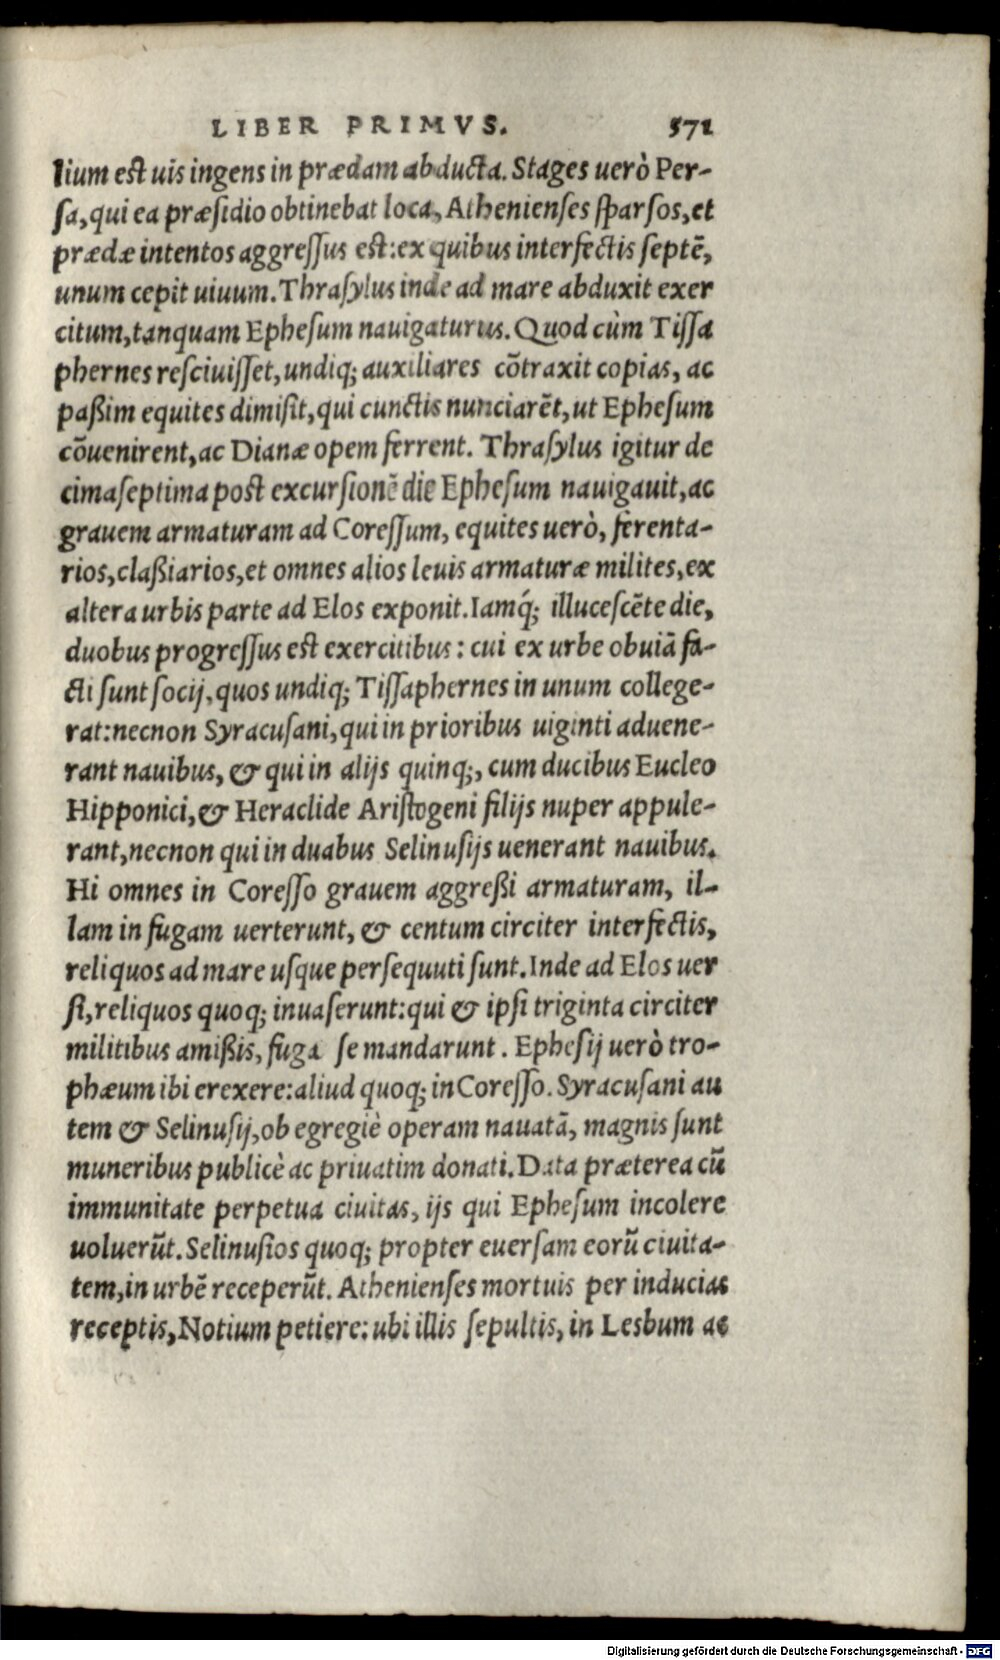 LIBER PRIMVS. 571
lium est uis ingens in prædam abducta. Stages uerò Per-
sa, qui ea præsidio obtinebat loca, Athenienses sparsos, et
prædæ intentos aggressus est: ex quibus interfectis septē,
unum cepit uiuum. Thrasylus inde ad mare abduxit exer
citum, tanquam Ephesum nauigaturus. Quod cùm Tissa
phernes resciuisset, undiq; auxiliares cōtraxit copias, ac
paßim equites dimisit, qui cunctis nunciarēt, ut Ephesum
cōuenirent, ac Dianæ opem ferrent. Thrasylus igitur de
cimaseptima post excursionē die Ephesum nauigauit, ac
grauem armaturam ad Coressum, equites uerò, ferenta-
rios, claßiarios, et omnes alios leuis armaturæ milites, ex
altera urbis parte ad Elos exponit. Iamq́; illucescēte die,
duobus progressus est exercitibus: cui ex urbe obuiā fa-
cti sunt socij, quos undiq; Tissaphernes in unum college-
rat: necnon Syracusani, qui in prioribus uiginti aduene-
rant nauibus, & qui in alijs quinq;, cum ducibus Eucleo
Hipponici, & Heraclide Aristogeni filijs nuper appule-
rant, necnon qui in duabus Selinusijs uenerant nauibus.
Hi omnes in Coresso grauem aggreßi armaturam, il-
lam in fugam uerterunt, & centum circiter interfectis,
reliquos ad mare usque persequuti sunt. Inde ad Elos uer
si, reliquos quoq; inuaserunt: qui & ipsi triginta circiter
militibus amißis, fuga se mandarunt. Ephesij uerò tro-
phæum ibi erexere: aliud quoq; in Coresso. Syracusani au
tem & Selinusij, ob egregiè operam nauatā, magnis sunt
muneribus publicè ac priuatim donati. Data præterea cū
immunitate perpetua ciuitas, ijs qui Ephesum incolere
uoluerūt. Selinusios quoq; propter euersam eorū ciuita-
tem, in urbē receperūt. Athenienses mortuis per inducias
receptis, Notium petiere: ubi illis sepultis, in Lesbum ac
Digitalisierung gefördert durch die Deutsche Forschungsgemeinschaft - DFG